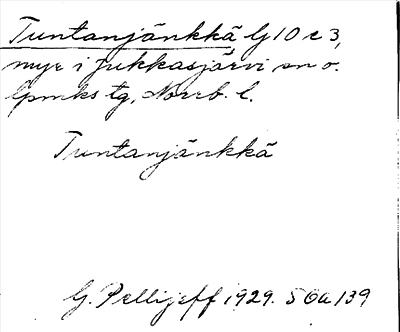 Tuntanjänkkä Lj 10 c 3,
myr i Jukkasjärvi sn o.
lpmks tg, Norrb. l.
Tuntanjänkkä
G. Pellijeff 1929. 50a/39